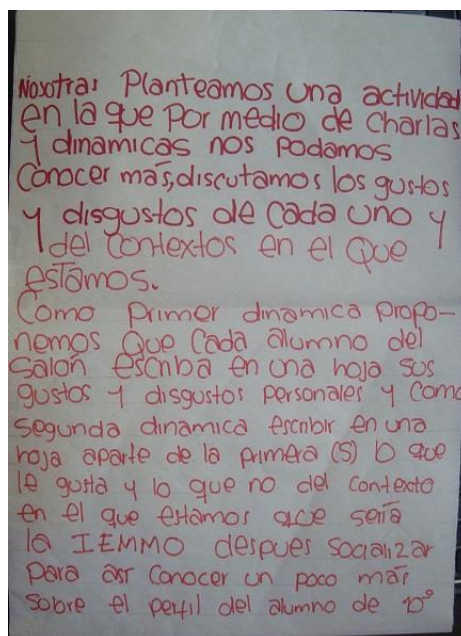 Nosotras Planteamos una actividad
en la que por medio de charlas
y dinamicas nos podamos
Conocer más, discutamos los gustos
y disgustos de cada uno y
del contextos en el que
estamos.
Como primer dinamica propo-
nemos que cada alumno del
salón escriba en una hoja sus
gustos y disgustos personales y como
segunda dinamica escribir en una
hoja aparte de la primera (s) lo que
le gusta y lo que no del contexto
en el que estamos que sería
la IEMMO despues socializar
para asr conocer un poco más
sobre el perfil del alumno de 10°